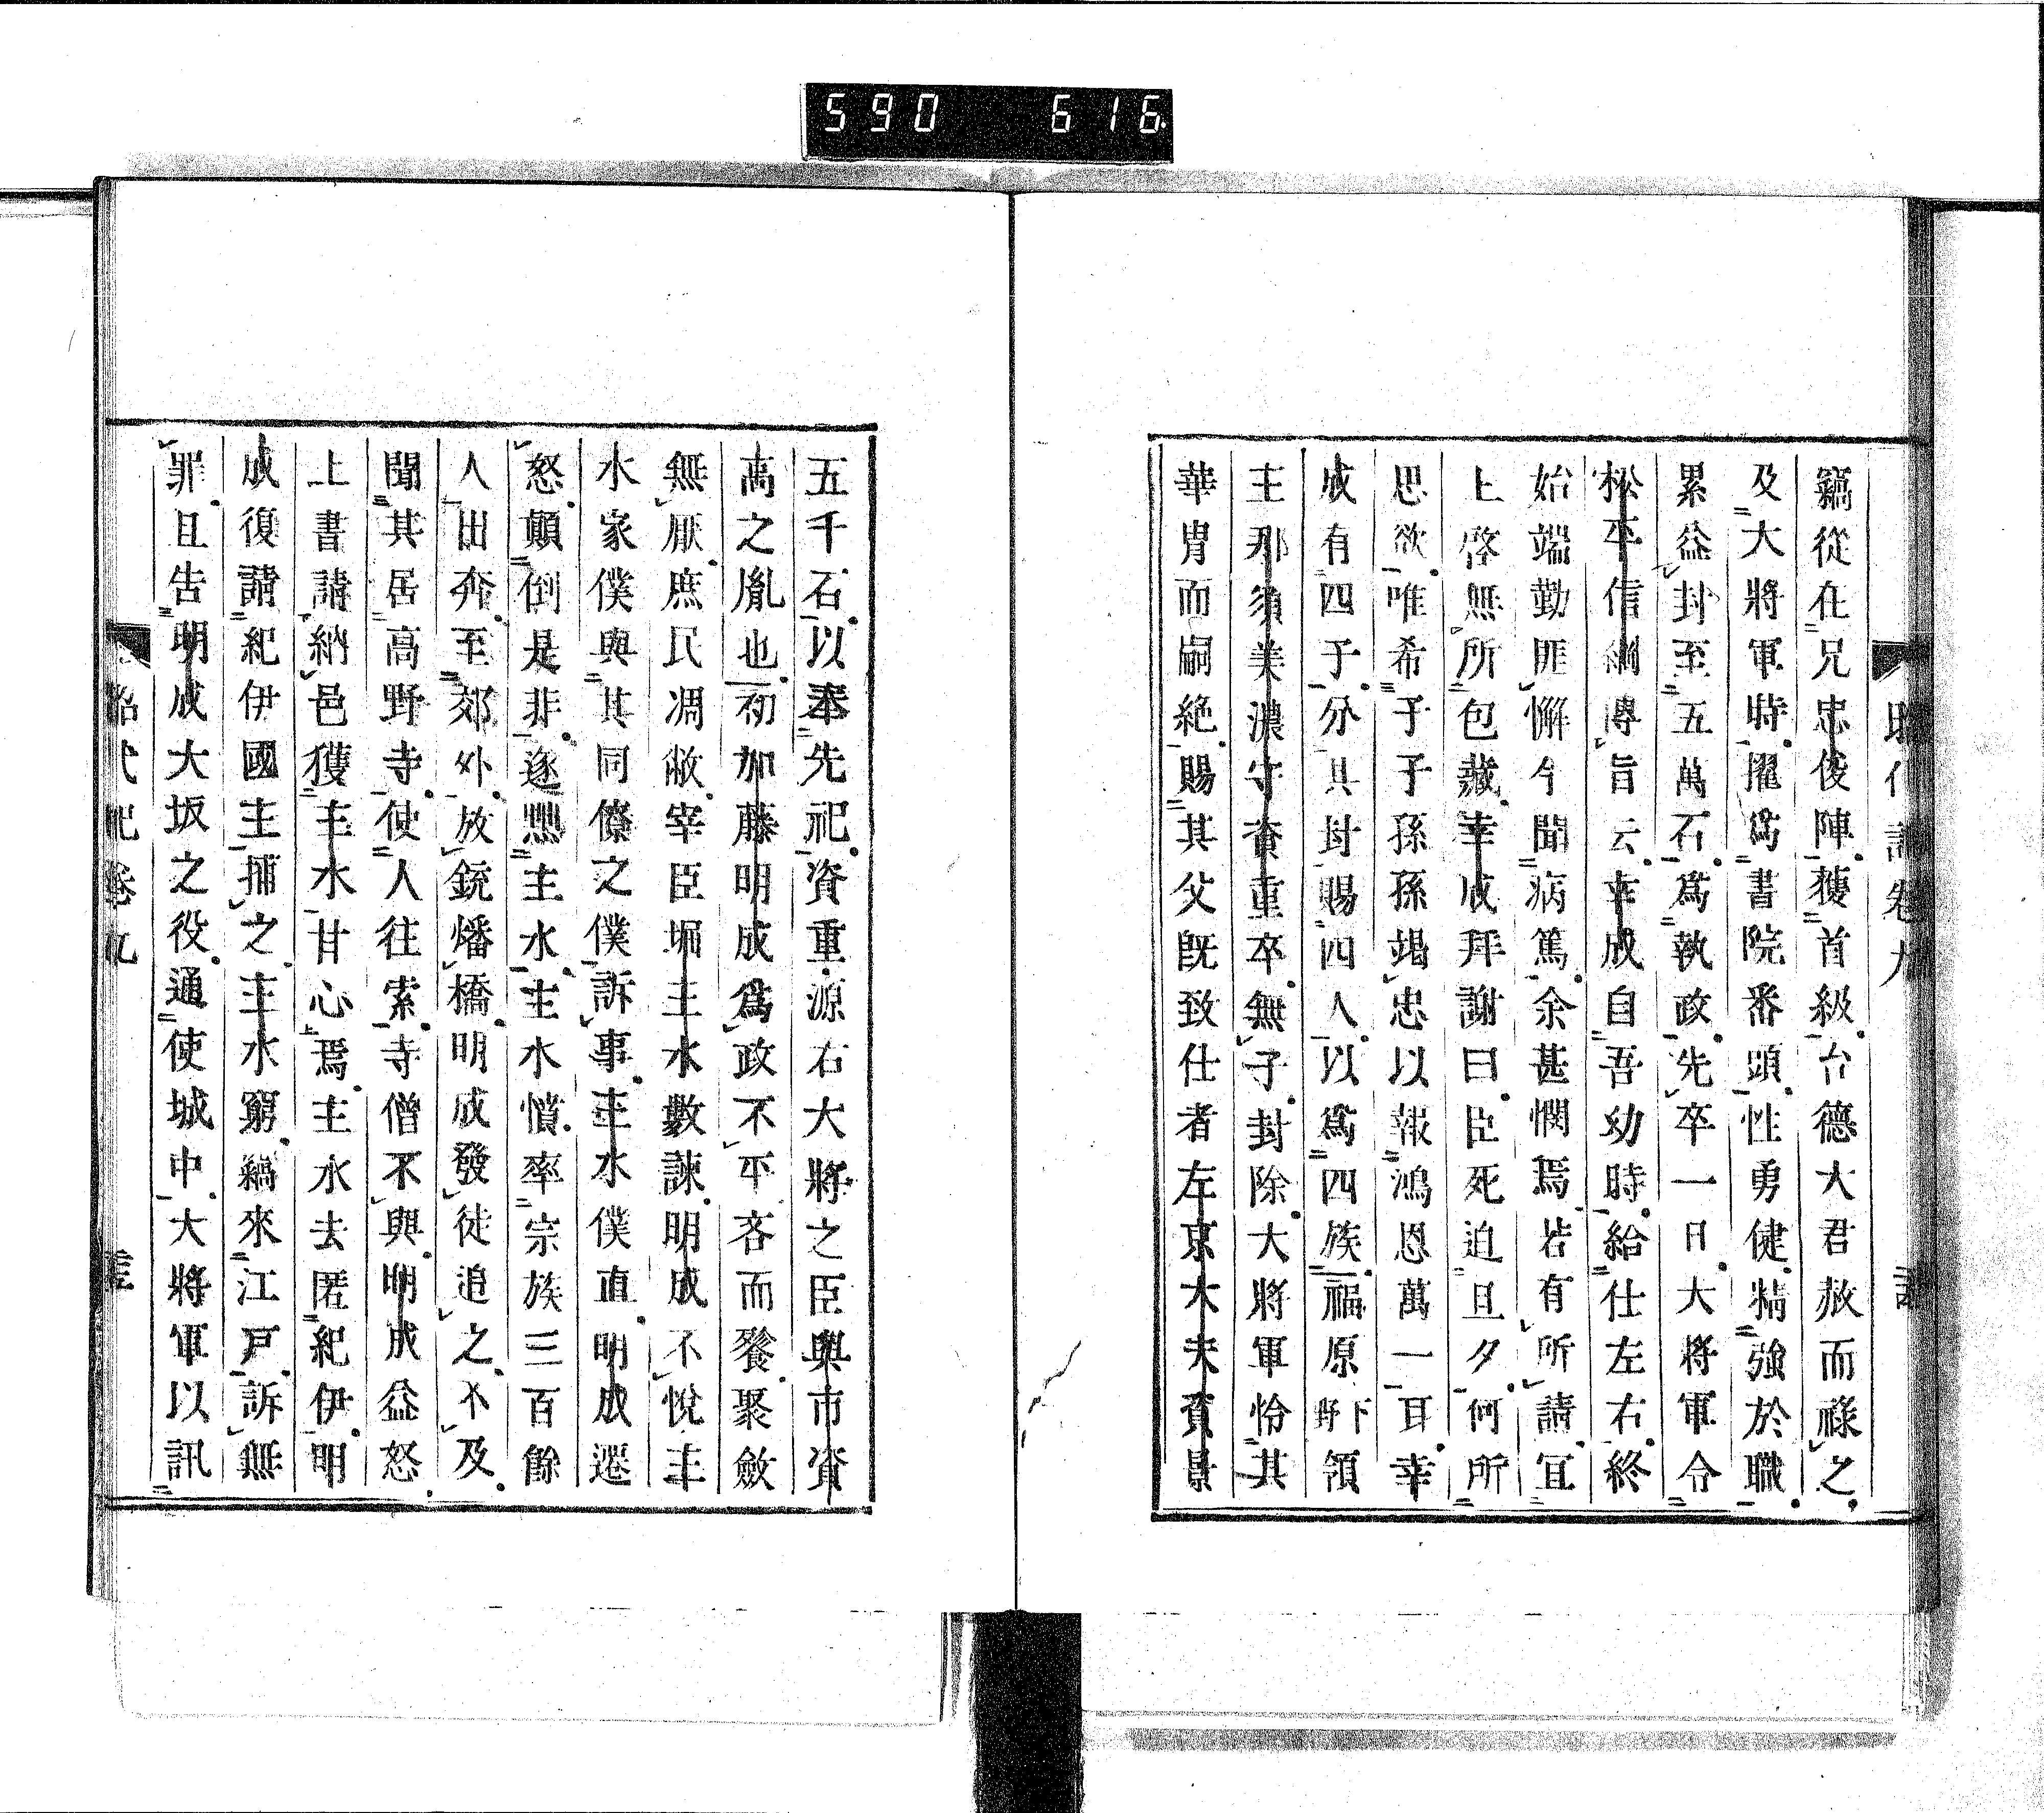 590 616
竊從在兄忠俊陣獲首級台德大君赦而祿之
及大將軍時擢爲書院番頭性勇健精強於職
累益封至五萬石爲執政先卒一日大將軍令
松平信綱傳旨云幸成自吾幼時給仕左右終
始端勤匪懈今聞病篤余甚憫焉若有所請宜
上啓無所包藏幸成拜謝曰臣死迫旦夕何所
思欲唯希子子孫孫竭忠以報鴻恩萬一耳幸
成有四子分其封賜四人以爲四族福原下野領
主那須美濃守資重卒無子封除大將軍怜其
華胄而嗣絶賜其父既致仕者左京大夫資景
五千石以奉先祀資重源右大將之臣與市資
高之胤也初加藤明成爲政不平吝而飱聚斂
無厭庶民凋敝宰臣堀主水數諫明成不悅主
水家僕與其同僚之僕訴事主水僕直明成遷
怒顛倒是非遂黜主水主水憤率宗族三百餘
人出奔至郊外放銃燔橋明成發徒追之不及
聞其居高野寺使人往索寺僧不與明成益怒
上書請納邑獲主水甘心焉主水去匿紀伊明
成復請紀伊國主捕之主水窮竊來江戸訴無
罪且告明成大坂之役通使城中大將軍以訊
卷九